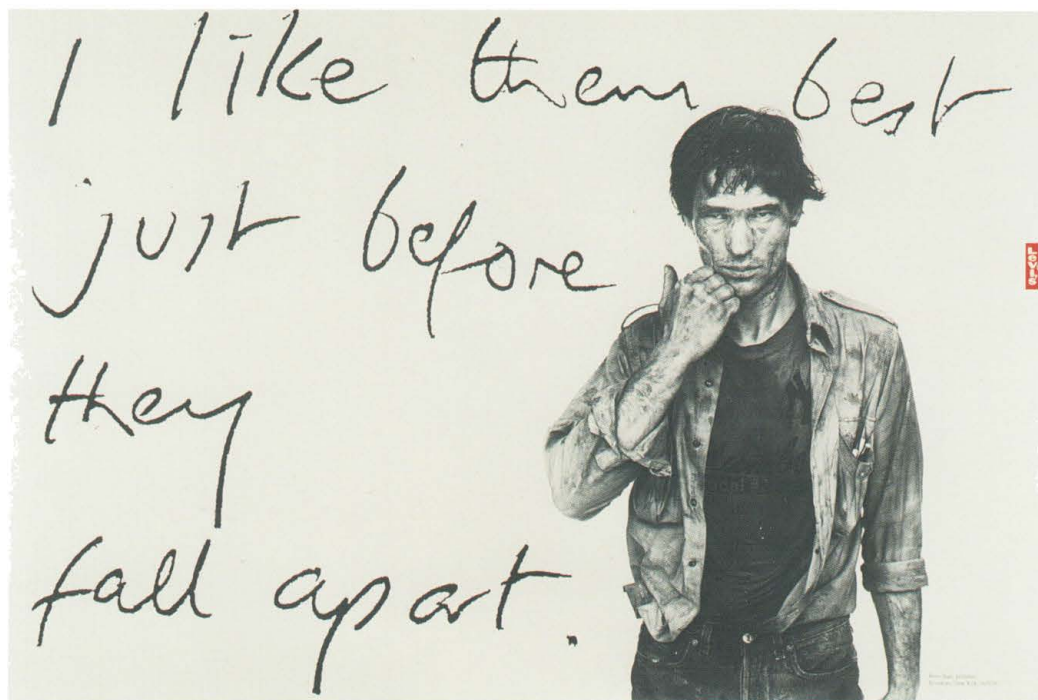 I like them best
just before
they
fall apart.
Levi's